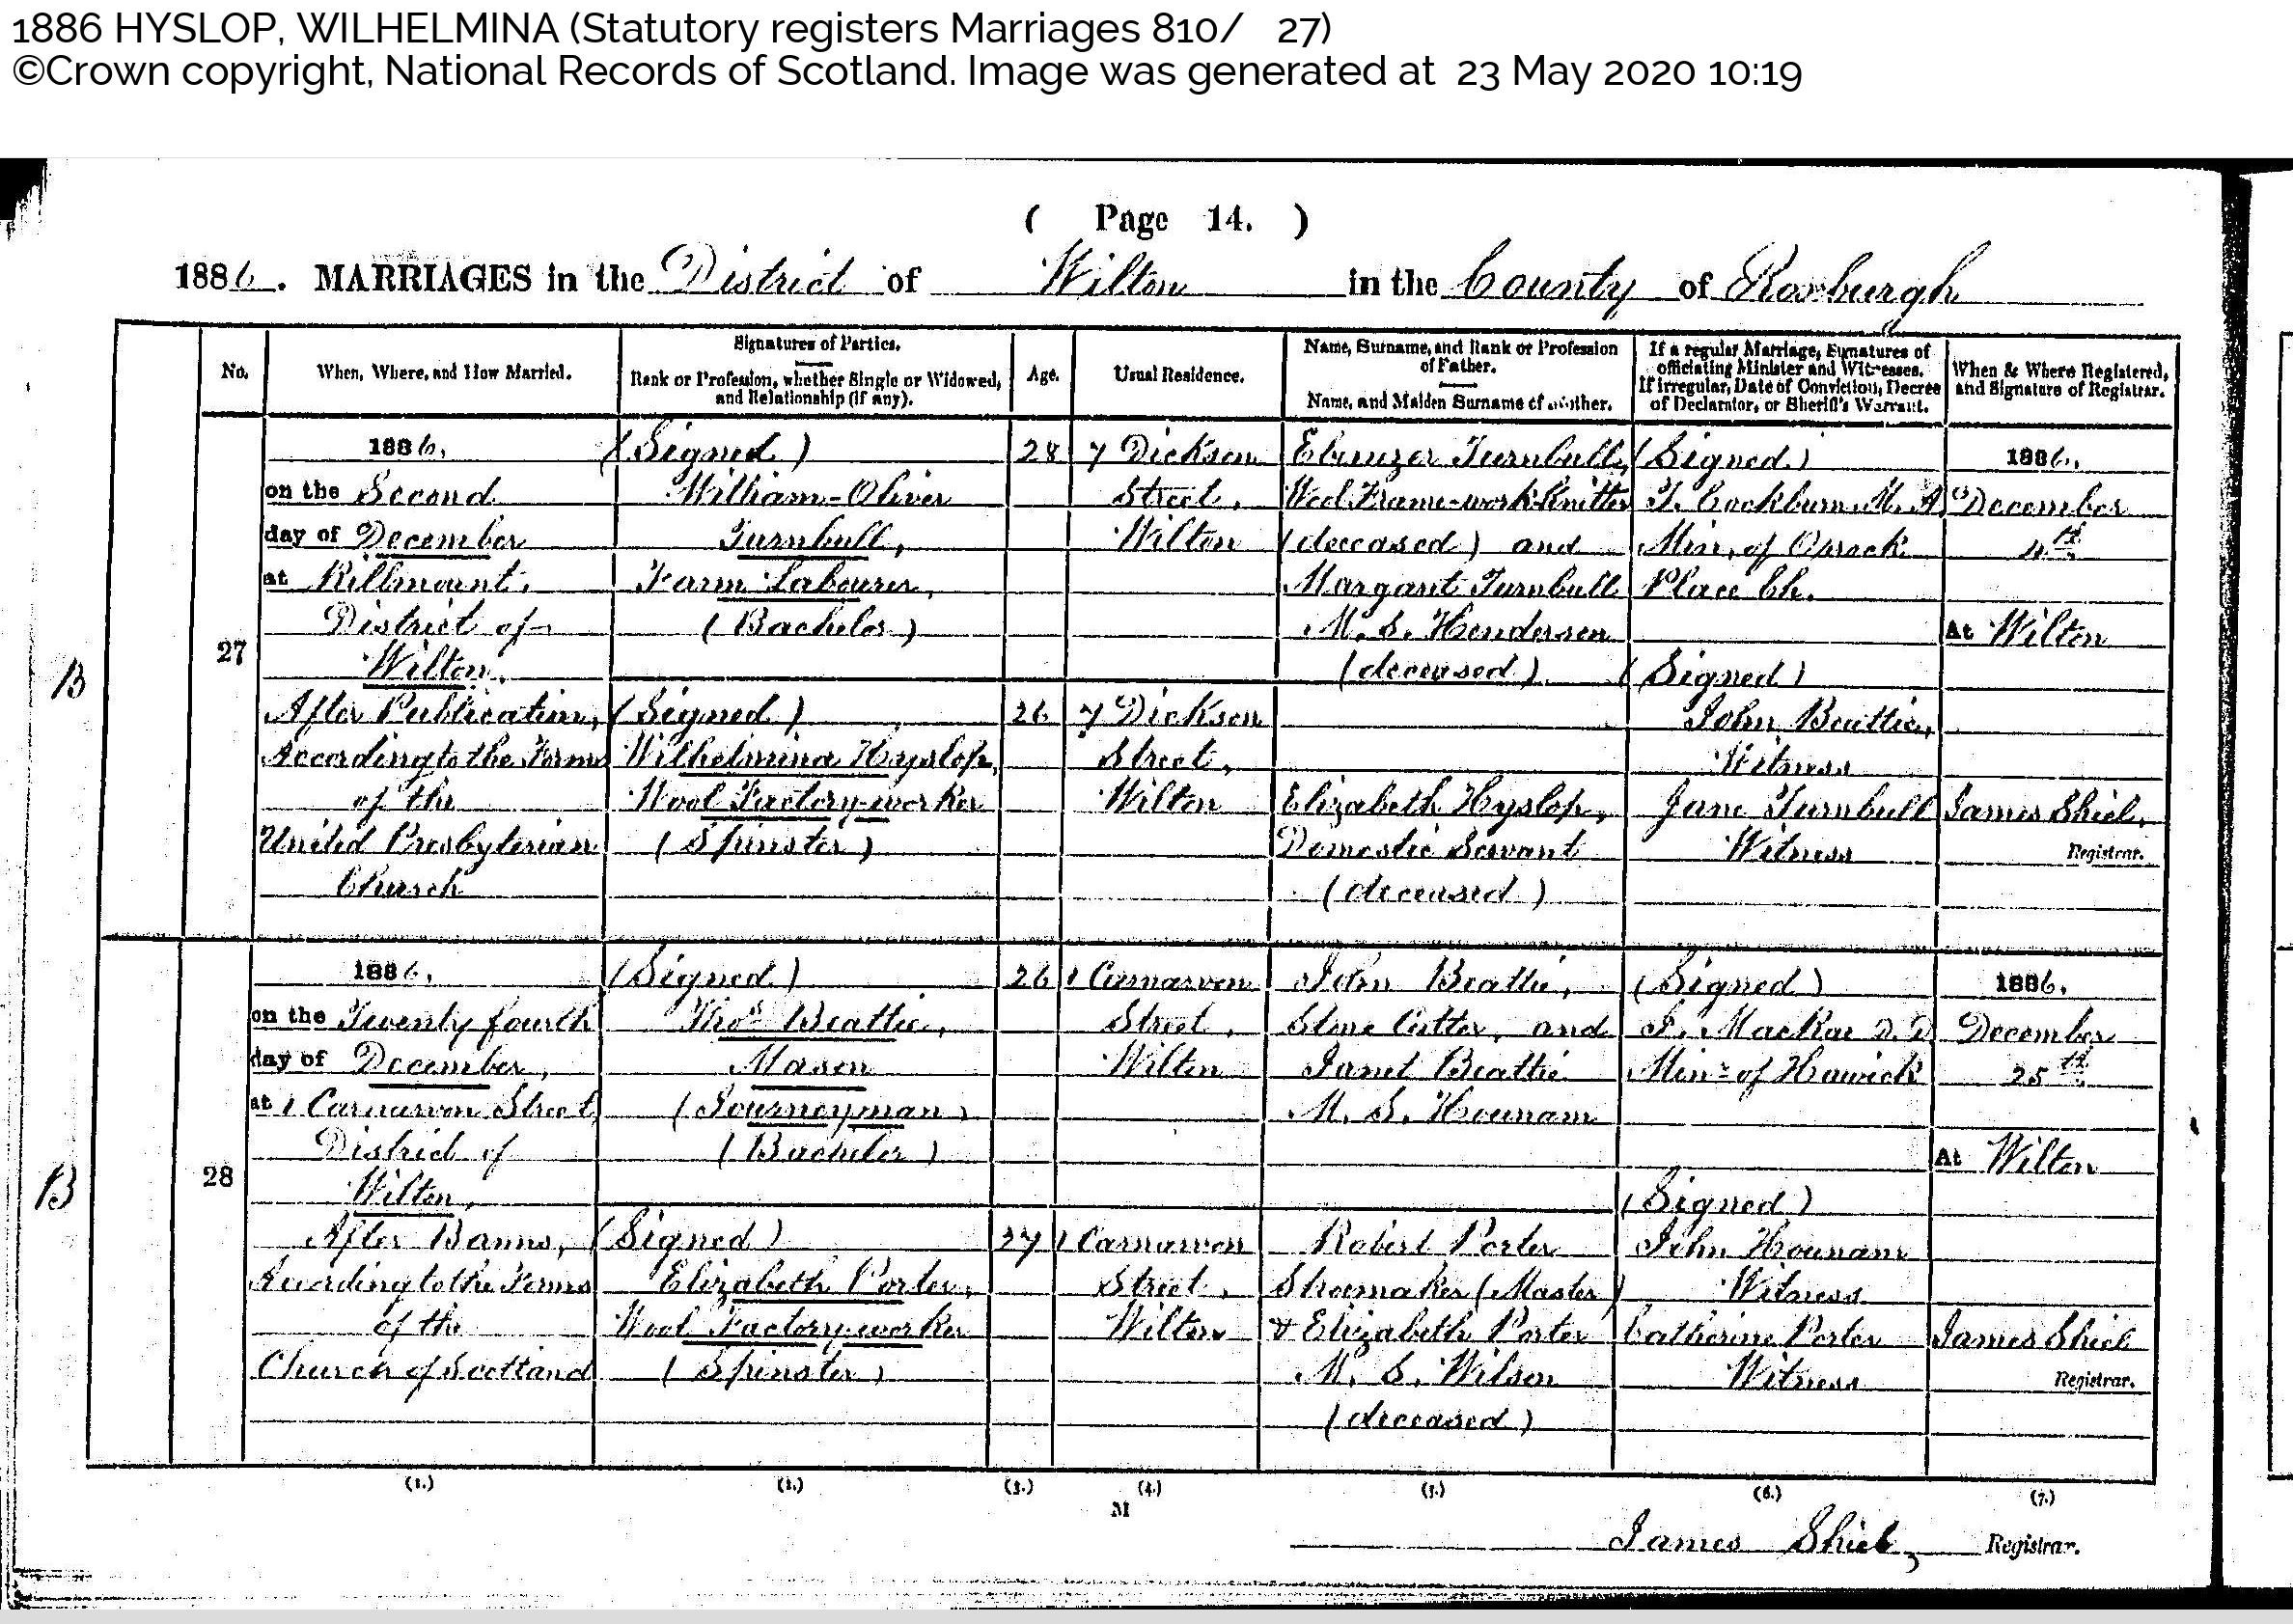 1886 HYSLOP, WILHELMINA (Statutory registers Marriages 810/ 27)
©Crown copyright, National Records of Scotland. Image was generated at 23 May 2020 10:19
( Page 14. )
1886. MARRIAGES in the District of Wilton in the County of Roxburgh
No.
When, Where, and How Married.
Signatures of Parties.
Rank or Profession, whether Single or Widowed,
and Relationship (if any).
Age.
Usual Residence.
Name, Surname, and Rank or Profession
of Father.
Name, and Maiden Surname of Mother.
If a regular Marriage, Signatures of
officiating Minister and Witnesses.
If irregular, Date of Conviction, Decree
of Declarator, or Sheriff's Warrant.
When & Where Registered,
and Signature of Registrar.
B
27
1886,
on the Second
day of December
at Rillmount,
District of
Wilton,
After Publication,
According to the Forms
of the
United Presbyterian
Church
(Signed)
William-Oliver
Turnbull,
Farm Labourer,
(Bachelor)
(Signed)
Wilhelmina Hyslop,
Wool Factory-worker
(Spinster)
28
26
7 Dickson
Street,
Wilton
7 Dickson
Street,
Wilton
Ebenezer Turnbull,
Wool Frame-work-Knitter
(deceased) and
Margaret Turnbull
M. S. Henderson
(deceased)
Elizabeth Hyslop,
Domestic Servant
(deceased)
(Signed)
T. Cockburn M. A
Min. of Orrock
Place Ch.
(Signed)
John Beattie,
Witness
Jane Turnbull
Witness
1886,
December
4th
At Wilton
James Shiel,
Registrar.
B
28
1886,
on the Twenty fourth
day of December,
at 1 Carnarvon Street,
District of
Wilton,
After Banns,
According to the Forms
of the
Church of Scotland
(Signed)
Thos Beattie,
Mason
(Journeyman)
(Bachelor)
(Signed)
Elizabeth Porter,
Wool Factory-worker
(Spinster)
26
27
1 Carnarvon
Street,
Wilton
1 Carnarvon
Street,
Wilton
John Beattie,
Stone Cutter, and
Janet Beattie
M. S. Hounam
Robert Porter
Shoemaker (Master)
& Elizabeth Porter
M. S. Wilson
(deceased)
(Signed)
MacRae D. D
Minr of Hawick
(Signed)
John Hounam
Witness
Catherine Porter
Witness
1886,
December
25th
At Wilton
James Shiel
Registrar.
(1.) (2.) (3.) (4.) (5.) (6.) (7.)
M
James Shiel, Registrar.